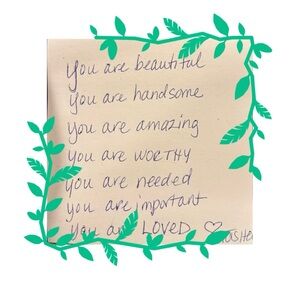 you are beautiful
you are handsome
you are amazing
you are WORTHY
you are needed
you are important
you are LOVED ♡